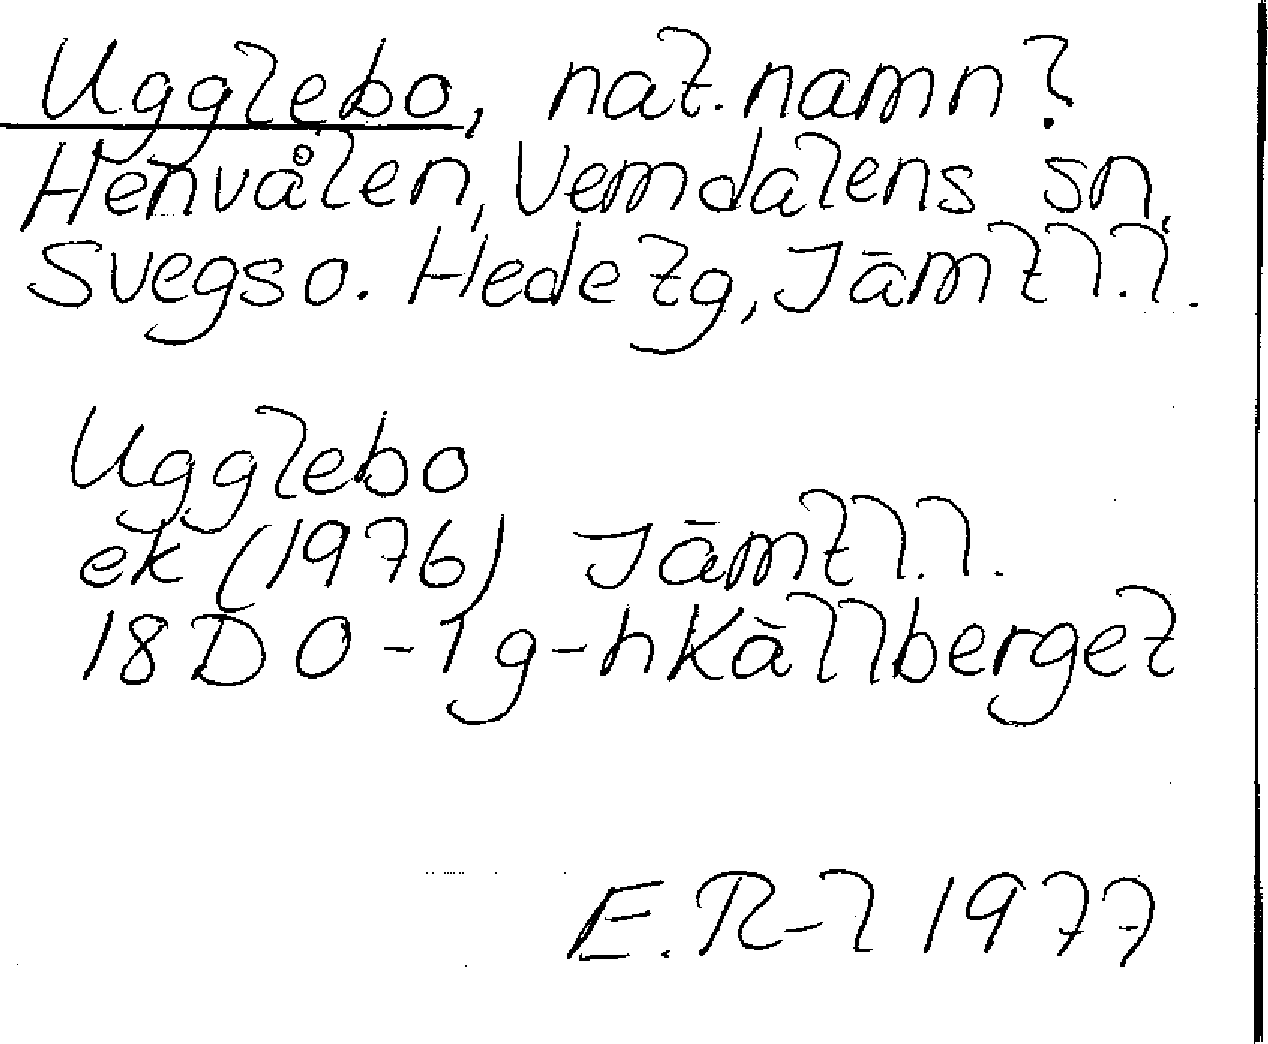 Ugglebo, nat.namn?
Henvålen, Vemdalens sn,
Svegs o. Hede tg, Jämtl.l.
Ugglebo
ek (1976) Jämtl.l.
18D 0-1 g-h Källberget
E.R-l 1977